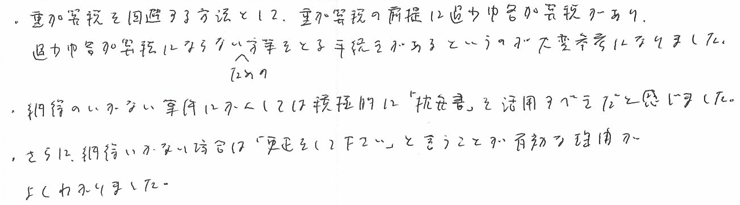 ・重加算税を回避する方法として、重加算税の前提に過少申告加算税があり、
過少申告加算税にならないための方策をとる手続きがあるというのが大変参考になりました。
・納得のいかない事件にかんしては積極的に「抗弁書」を活用すべきだと思いました。
・さらに、納得いかない場合は「更正をして下さい」と言うことが有効な理由が
よくわかりました。